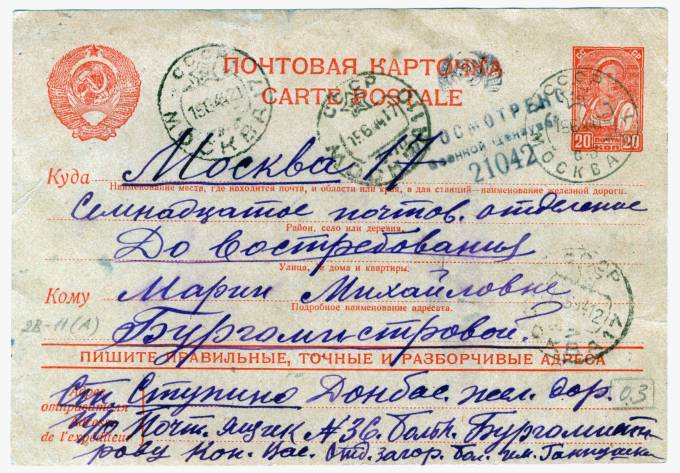 ПОЧТОВАЯ КАРТОЧКА
CARTE POSTALE
СССР МОСКВА
20 КОП 20
ОСМОТРЕНО
Военной Цензурой
21042
Куда Москва 17
Наименование места, где находится почта, и области или края, а для станций—наименование железной дороги.
Семнадцатое почтов. отделение
Район, село или деревня.
До Востребования
Улица, № дома и квартиры.
Кому Марии Михайловне
Подробное наименование адресата.
28-11(А) Бургомистровой.
ПИШИТЕ ПРАВИЛЬНЫЕ, ТОЧНЫЕ И РАЗБОРЧИВЫЕ АДРЕСА
Адрес отправителя Ст. Ступино Донбас. жел. дор. 0.3
Adresse de l'expéditeur Почт. ящик №36. больн. Бургомист
рову Кон. Вас. Отд. загор. бол. им.